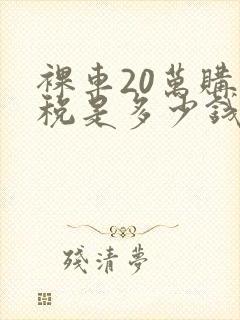 裸車20萬購
稅是多少錢
殘清夢